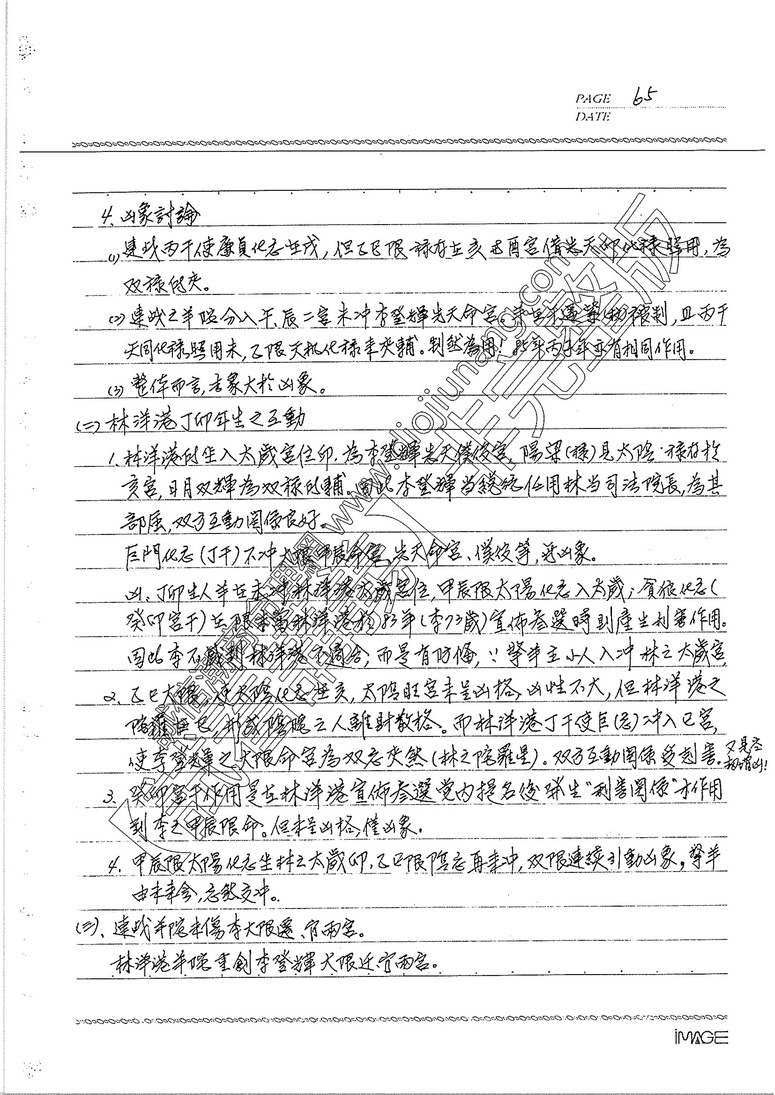 PAGE 65
DATE
4. 凶象討論
(1) 連戰丙干使廉貞化忌生戌，但乙巳限祿存在亥且酉宮借忠天卯化祿照用，為
双祿的夾。
(2) 連戰之羊陀分入午、辰二宮來冲李登輝先天命宮，限制，且丙干
天同化祿照用未，乙限天机化祿來夾輔。剋然為用！丙子年亦有相同作用。
(3) 整体而言，吉象大於凶象。
(二) 林洋港丁卯年生之互動
1. 林洋港的生入太歲宮位卯，為李登輝先天僕役宮，陽梁(祿)見太陰·祿存於
亥宮，日月双輝為双祿的輔。因此李登輝當總統任用林当司法院長，為其
部屬，双方互動関係良好。
巨門化忌(丁干)不冲大限甲辰命宮、先天命宮、僕役等，逆凶象。
凶、丁卯生人羊在未冲林洋港太歲宮位，甲辰限太陽化忌入太歲；貪狼化忌(
癸卯宮干)在限 林洋港於83年(李73歲)宣佈參選時則產生利害作用。
因此李不感到林洋港不適合，而是有防備，∵擎羊主小人入冲林之太歲宮
2. 乙巳大限，使太陰化忌在亥，太陰旺宮未呈凶格，凶性不大，但林洋港之
陀羅在巳，形成陰隱之人離財散格。而林洋港丁干使巨(忌)冲入巳宮，
使李登輝之大限命宮為双忌夾煞(林之陀羅星)。双方互動関係受剋害。又見忌
初有凶!
3. 癸卯宮干作用是在林洋港宣佈參選党内提名後發生"利害関係"才作用
到李之甲辰限命。但未呈凶格，僅凶象。
4. 甲辰限太陽化忌生林之太歲卯，乙巳限陰忌再來冲，双限連續引動凶象。擎羊
由未來會，忌煞交冲。
(三)、連戰羊陀未傷李大限遷、官兩宮。
林洋港羊陀重創李登輝大限迁官兩宮。
iMAGE
www.jiojiunang.com